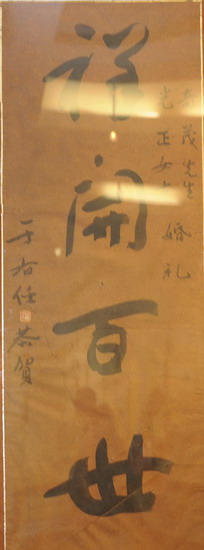 奇茂先生
光正女士 婚礼
祥開百世
于右任恭賀